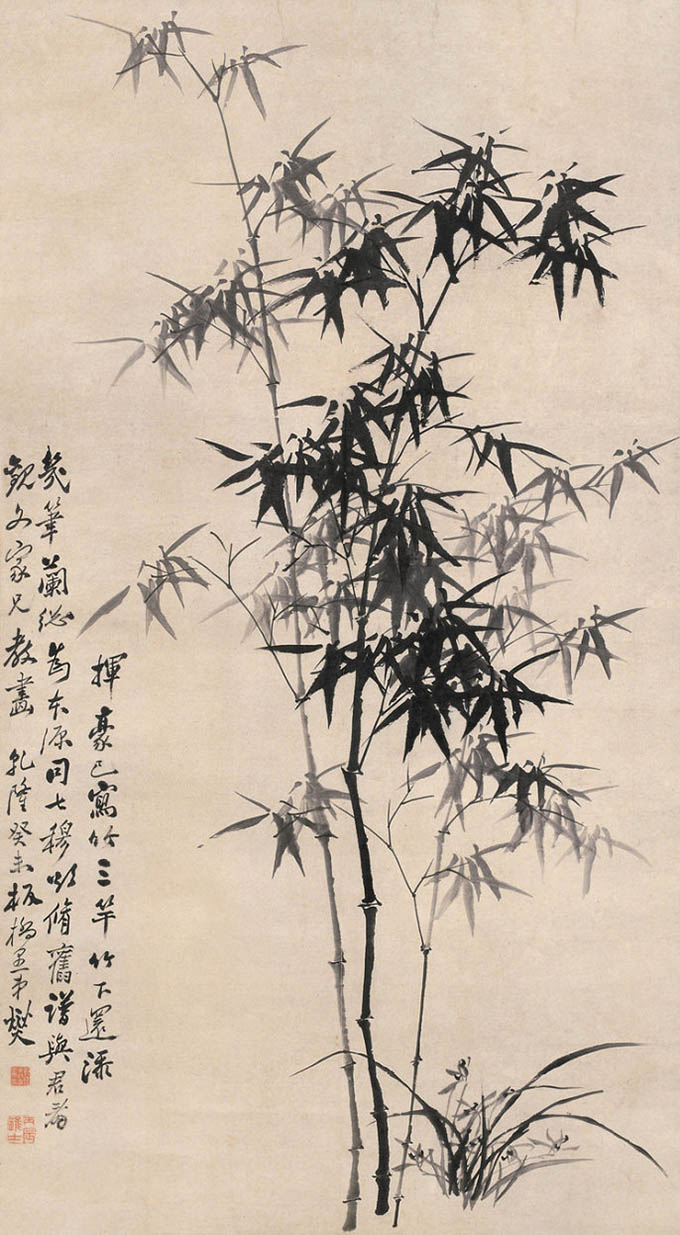 揮豪已寫竹三竿竹下還添
幾筆蘭總為本源同七穆欲脩舊譜與君看
觀文家兄教畫 乾隆癸未板橋愚弟燮